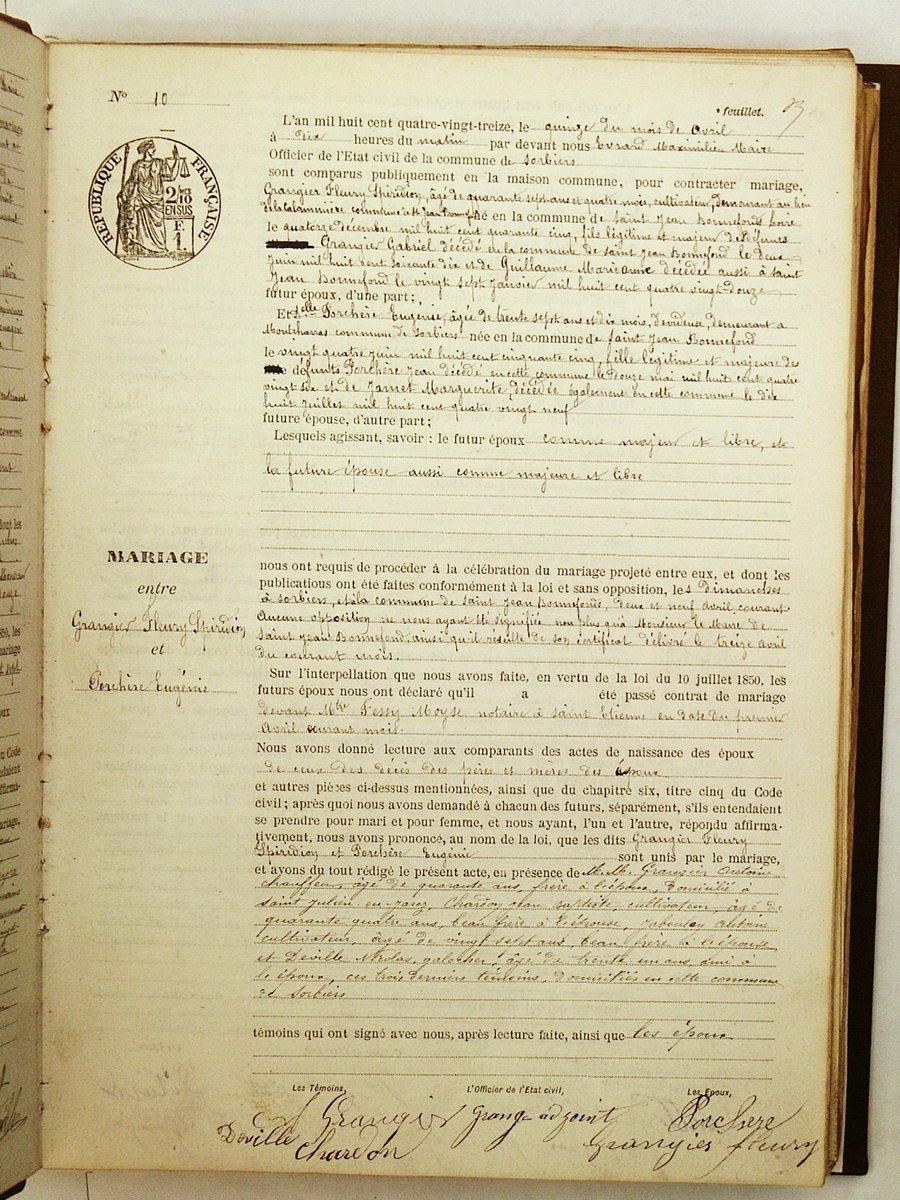 No 10
feuillet.
RÉPUBLIQUE FRANÇAISE
2/10 EN SUS
F. 1
L'an mil huit cent quatre-vingt-treize, le quinze du mois de avril
à dix heures du matin par devant nous Evrard Maximilien Maire
Officier de l'Etat civil de la commune de Sorbiers
sont comparus publiquement en la maison commune, pour contracter mariage,
Grangier Fleury Spiridion, âgé de quarante sept ans et quatre mois, cultivateur, demeurant au lieu
de la Calaminière commune de St Jean Bonnefond né en la commune de Saint Jean Bonnefonds Loire
le quatorze décembre mil huit cent quarante cinq, fils légitime et majeur de défunts
Grangier Gabriel décédé en la commune de Saint Jean Bonnefond le deux
juin mil huit cent soixante dix et de Guillaume Marieanne décédée aussi à Saint
Jean Bonnefond le vingt sept janvier mil huit cent quatre vingt-douze
futur époux, d'une part ;
Et Delle Porchère Eugénie, âgée de trente sept ans et dix mois, Dévideuse, demeurant a
Montcharras commune de Sorbiers née en la commune de Saint Jean Bonnefond
le vingt quatre juin mil huit cent cinquante cinq, fille légitime et majeure des
défunts Porchère Jean décédé en cette commune le douze mai mil huit cent quatre
vingt six et de Jamet Marguerite, décédée également en cette commune le dix
huit juillet mil huit cent quatre vingt neuf
future épouse, d'autre part ;
Lesquels agissant, savoir : le futur époux comme majeur et libre, et
la future épouse aussi comme majeure et libre
MARIAGE
entre
Grangier Fleury Spiridion
et
Porchère Eugénie
nous ont requis de procéder à la célébration du mariage projeté entre eux, et dont les
publications ont été faites conformément à la loi et sans opposition, les dimanches
à Sorbiers, et à la commune de Saint Jean Bonnefonds, deux et neuf avril courant
Aucune opposition ne nous ayant été signifiée non plus qu'à Monsieur le Maire de
Saint Jean Bonnefond, ainsi qu'il résulte de son certificat délivré le treize avril
du courant mois.
Sur l'interpellation que nous avons faite, en vertu de la loi du 10 juillet 1850, les
futurs époux nous ont déclaré qu'il a été passé contrat de mariage
devant Mtre Fessy Moyse notaire à Saint Etienne en date du premier
avril courant mois.
Nous avons donné lecture aux comparants des actes de naissance des époux
de ceux des décès des pères et mères des époux
et autres pièces ci-dessus mentionnées, ainsi que du chapitre six, titre cinq du Code
civil ; après quoi nous avons demandé à chacun des futurs, séparément, s'ils entendaient
se prendre pour mari et pour femme, et nous ayant, l'un et l'autre, répondu affirma-
tivement, nous avons prononcé, au nom de la loi, que les dits Grangier Fleury
Spiridion et Porchère Eugénie sont unis par le mariage,
et avons du tout rédigé le présent acte, en présence de M.M. Grangier Antoine
chauffeur, âgé de quarante ans, frère à l'époux, domicilié à
Saint Julien en Jarez, Chardon Jean Baptiste, cultivateur, âgé de
quarante quatre ans, beau frère à l'épouse, Jaboulay Antoine
cultivateur, âgé de vingt sept ans, beau frère à l'épouse
et Deville Nicolas, galocher, âgé de trente un ans, ami à
l'époux, ces trois derniers témoins, domiciliés en cette commune
de Sorbiers
témoins qui ont signé avec nous, après lecture faite, ainsi que les époux
Les Témoins,
L'Officier de l'Etat civil,
Les Epoux,
Grangier
Grange adjoint
Porchère
Deville
Chardon
Grangier fleury